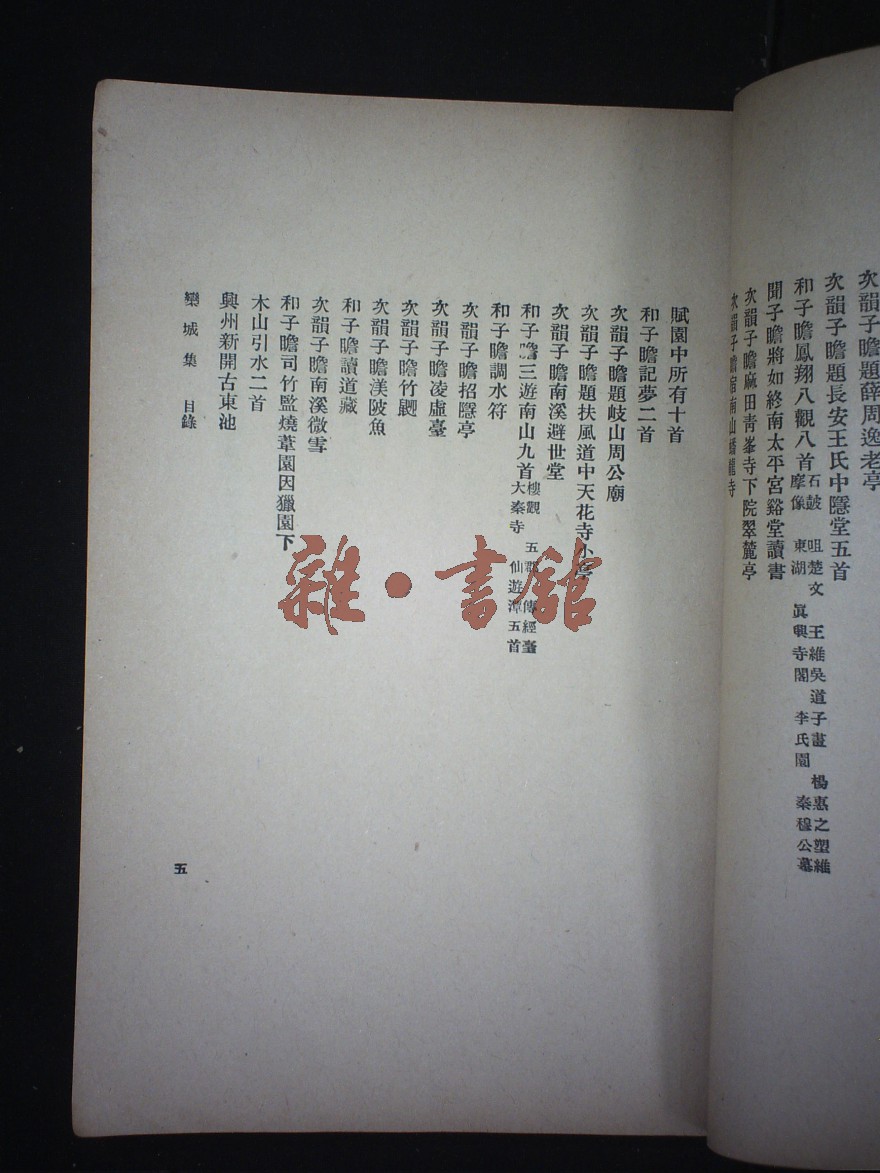 次韻子瞻題薛周逸老亭
次韻子瞻題長安王氏中隱堂五首
和子瞻鳳翔八觀八首 石鼓 咀楚文 王維吳道子畫 楊惠之塑維摩像 東湖 眞興寺閣 李氏園 秦穆公墓
聞子瞻將如終南太平宮谿堂讀書
次韻子瞻麻田靑峯寺下院翠麓亭
次韻子瞻宿南山蟠龍寺
賦園中所有十首
和子瞻記夢二首
次韻子瞻題岐山周公廟
次韻子瞻題扶風道中天花寺小亭
次韻子瞻南溪避世堂
和子瞻三遊南山九首 樓觀 五郡 傳經臺 大秦寺 仙遊潭五首
和子瞻調水符
次韻子瞻招隱亭
次韻子瞻凌虛臺
次韻子瞻竹𪕋
次韻子瞻渼陂魚
和子瞻讀道藏
次韻子瞻南溪微雪
和子瞻司竹監燒葦園因獵園下
木山引水二首
興州新開古東池
欒城集 目錄
五
雜·書館